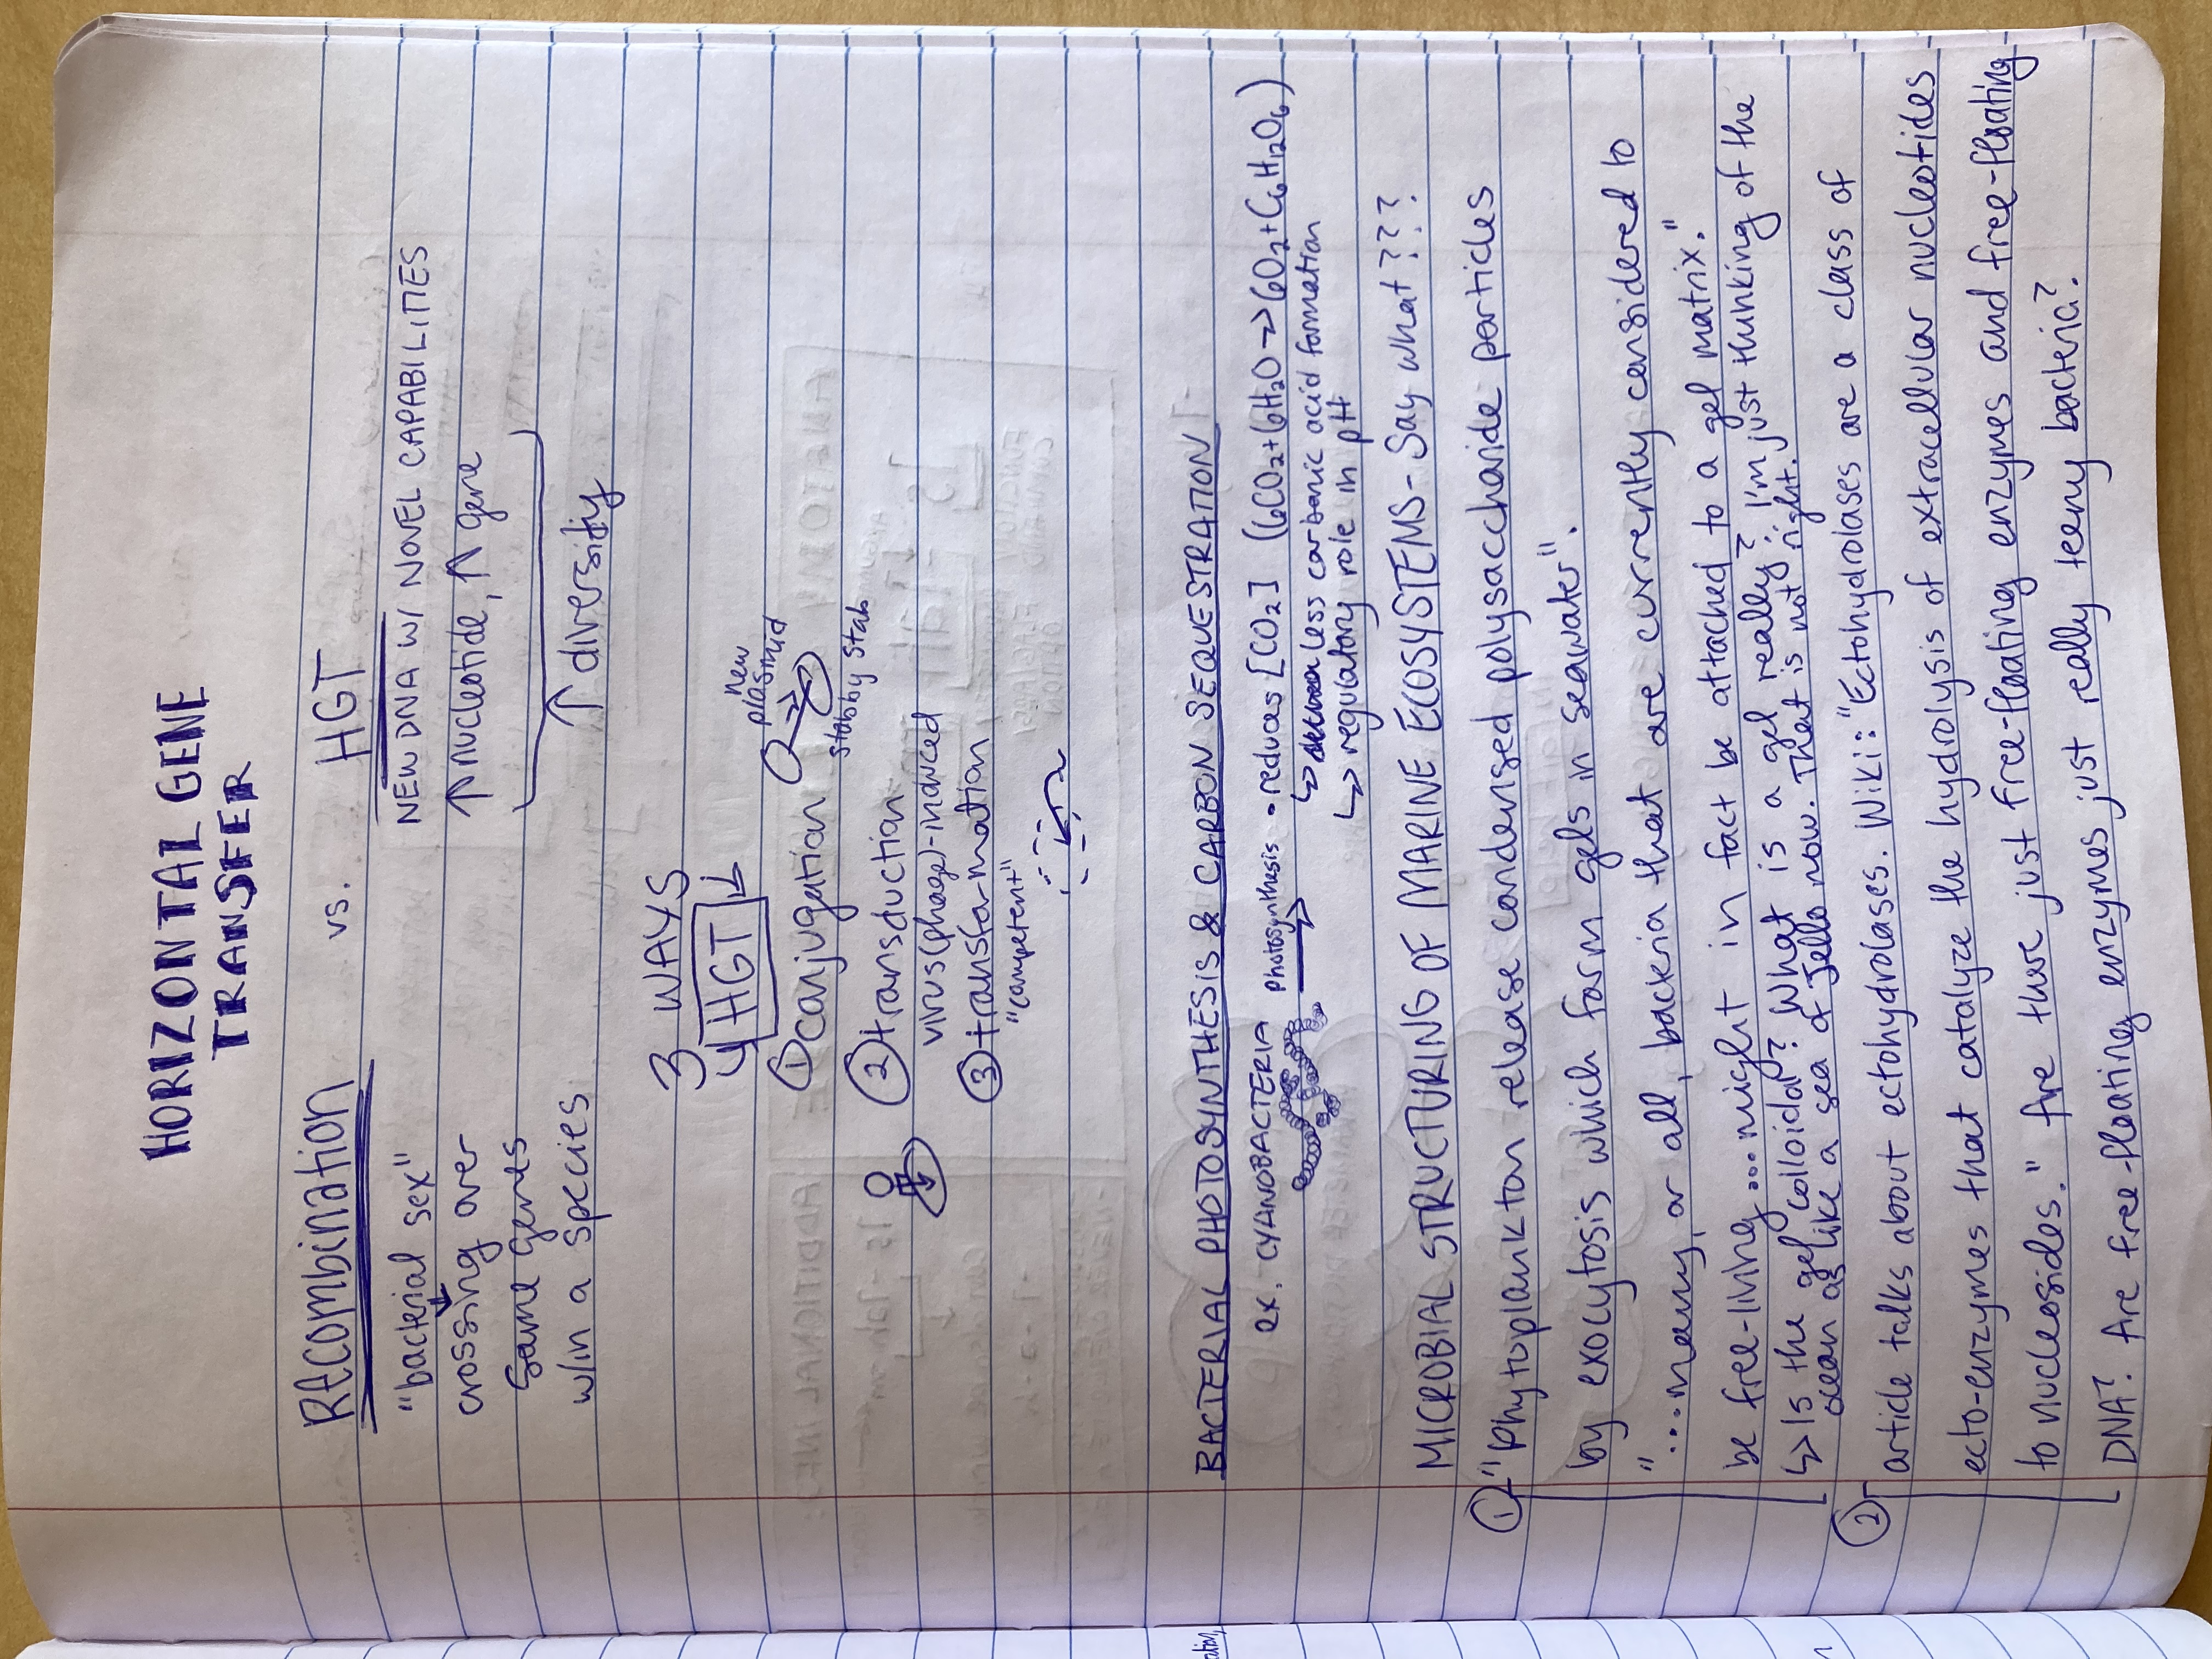 HORIZONTAL GENE
TRANSFER
Recombination vs. HGT
"bacterial sex"
crossing over
same genes
w/in a species
NEW DNA W/ NOVEL CAPABILITIES
↑ nucleotide, ↑ gene
↑ diversity
3 WAYS
4 HGT ↓
① conjugation
new
plasmid
stabby stab
② transduction
virus(phage)-induced
③ transformation
"competent"
BACTERIAL PHOTOSYNTHESIS & CARBON SEQUESTRATION
ex. CYANOBACTERIA photosynthesis • reduces [CO₂] (6CO₂+6H₂O → 6O₂+C₆H₁₂O₆)
↳ less carbonic acid formation
↳ regulatory role in pH
MICROBIAL STRUCTURING OF MARINE ECOSYSTEMS - Say what???
① "Phytoplankton release condensed polysaccharide particles
by exocytosis which form gels in seawater".
"...many, or all, bacteria that are currently considered to
be free-living...might in fact be attached to a gel matrix."
↳ Is the gel colloidal? What is a gel really? I'm just thinking of the
ocean as like a sea of Jello now. That is not right.
② article talks about ectohydrolases. Wiki: "Ectohydrolases are a class of
ecto-enzymes that catalyze the hydrolysis of extracellular nucleotides
to nucleosides." Are there just free-floating enzymes and free-floating
DNA? Are free-floating enzymes just really teeny bacteria?